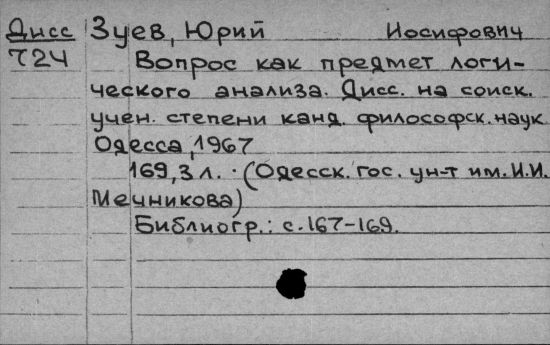 Дисс Зуев, Юрий Иосифович
724 Вопрос как предмет логи-
ческого анализа. Дисс. на соиск.
учен. степени канд. философск. наук
Одесса, 1967
169, 3 л. (Одесск. гос. ун-т им. И.И.
Мечникова)
Библиогр.: с. 167-169.